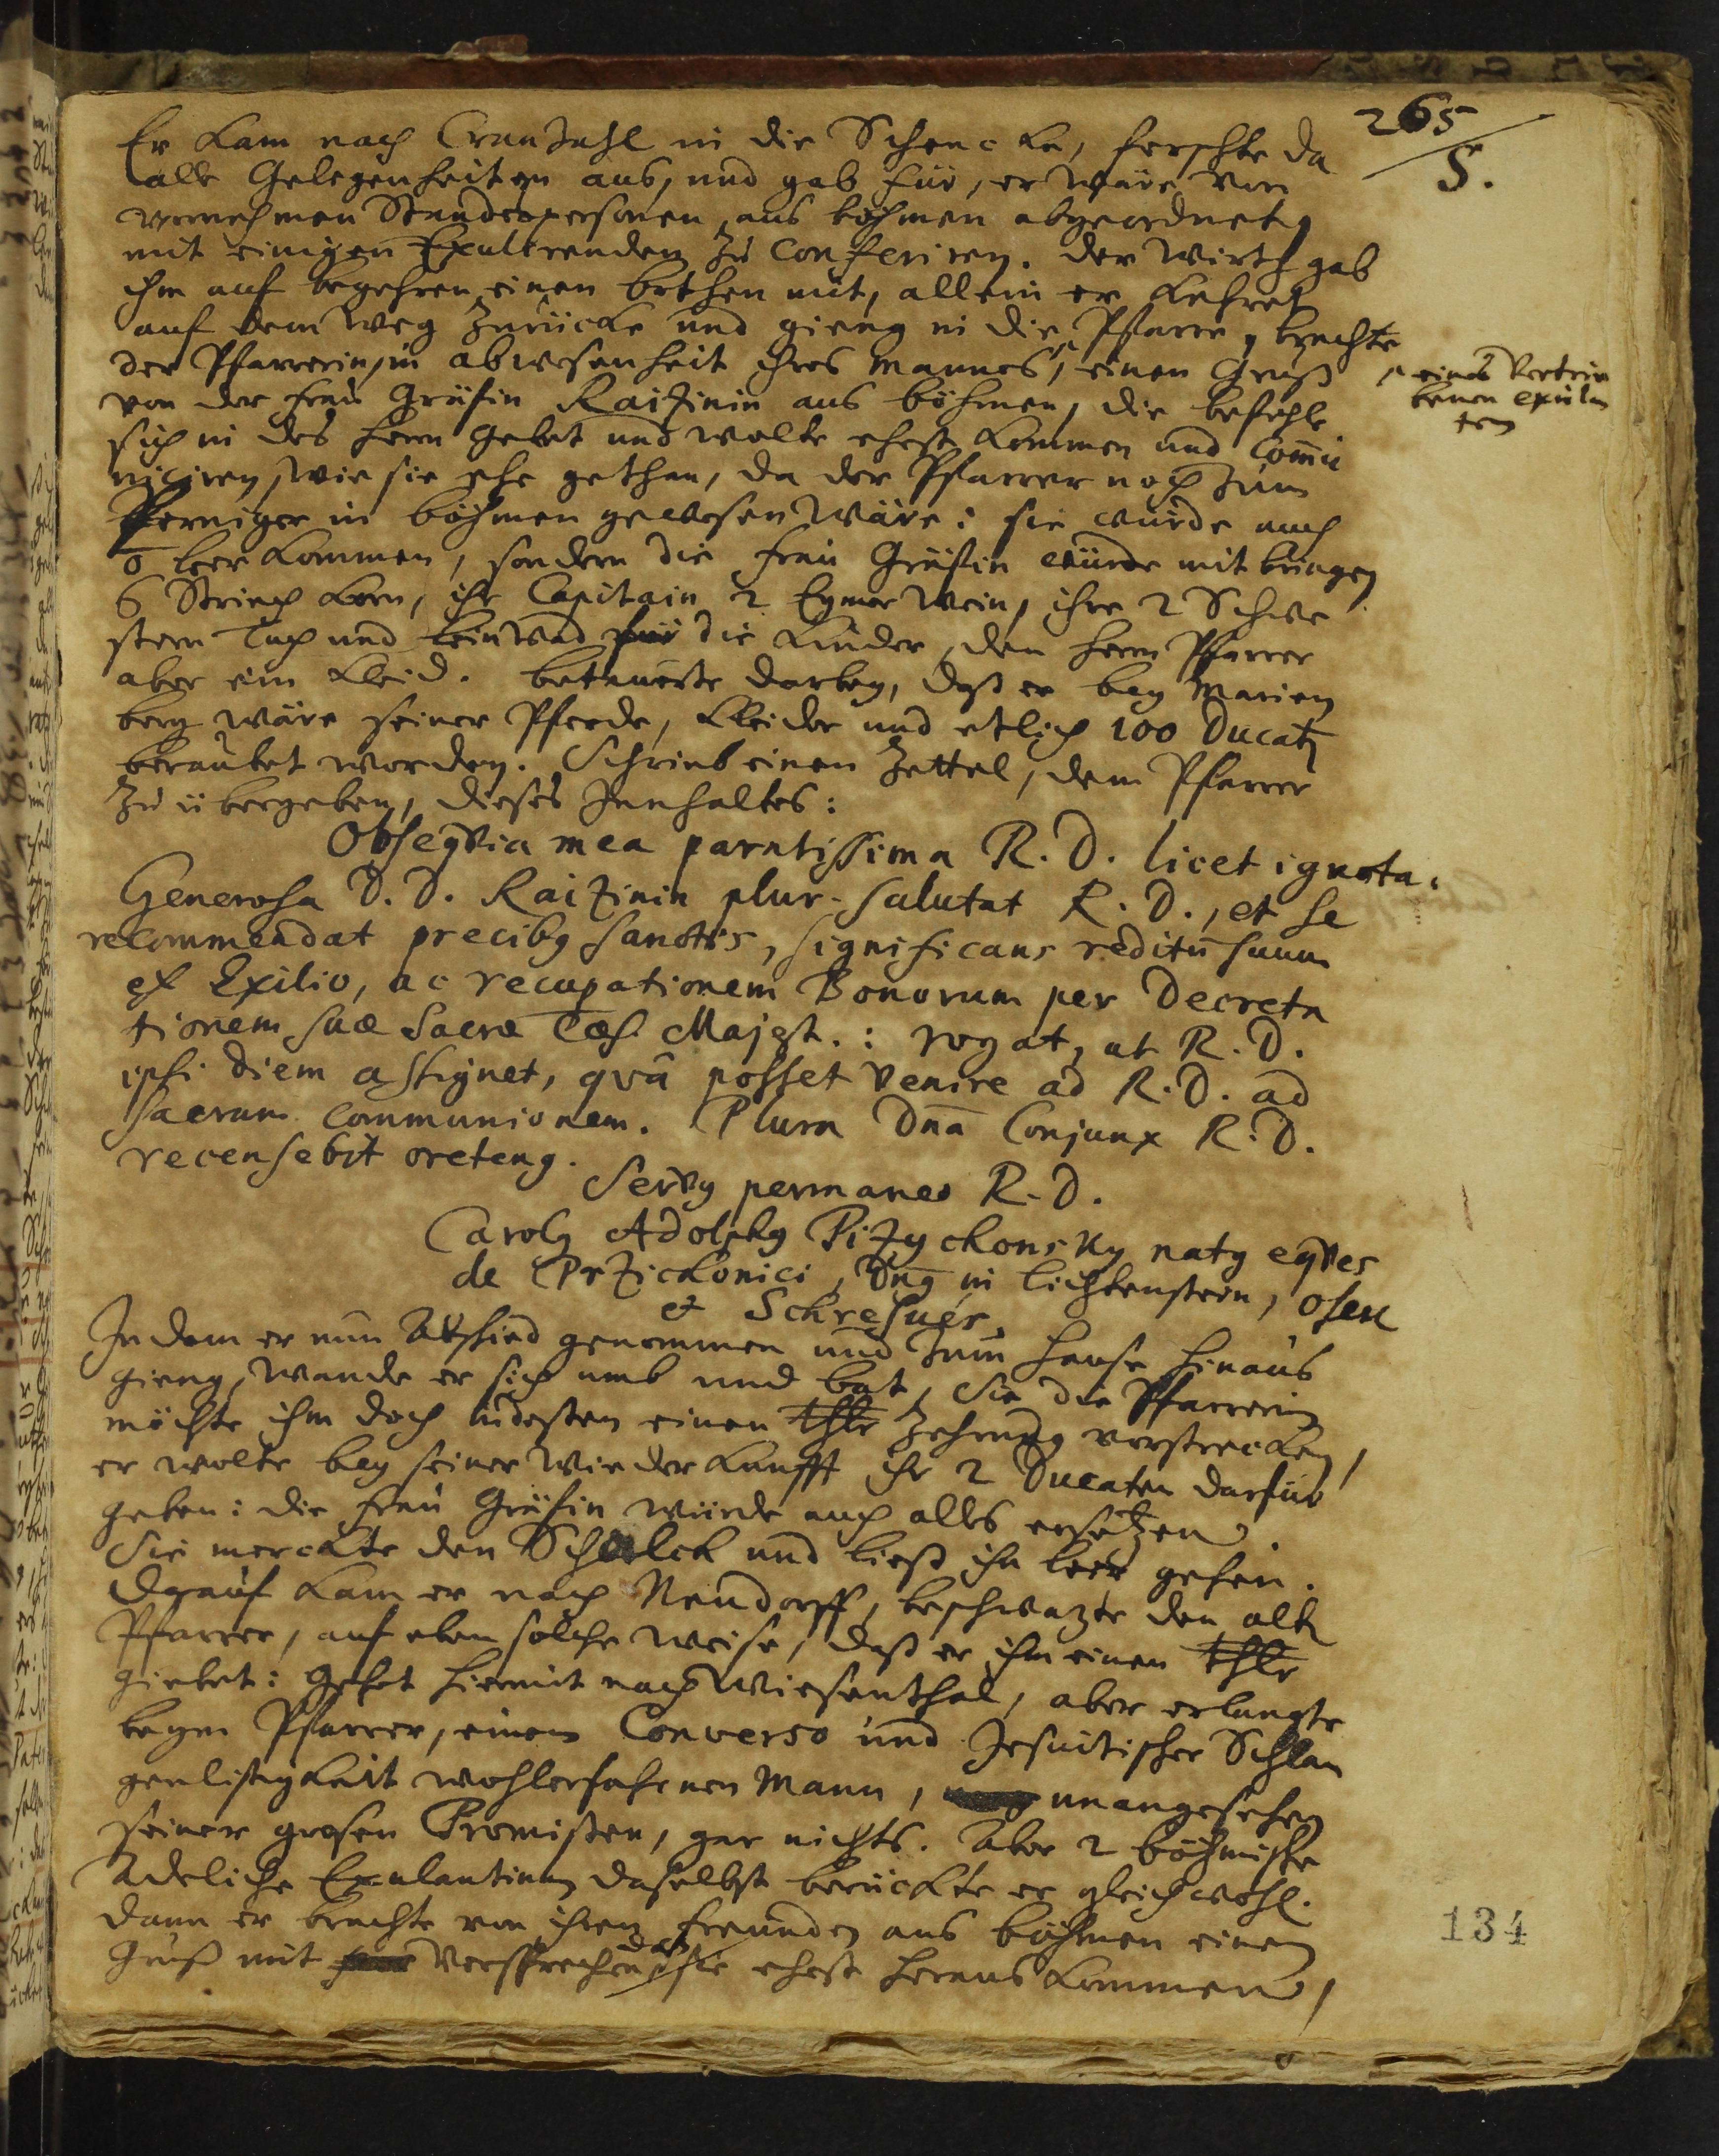 265
S.
Er kam nach Cranzahl in die Schencke, forschte da
alle Gelegenheiten aus, und gab für, er wäre von
vornehmen Standespersonen aus böhmen abgeordnet,
mit einigen Exulirenden zu conferiren. der wirth gab
ihm auf begehren einen bothen mit, allein er kehret
auf dem weg zurücke und gieng in die Pfarre, brachte
der Pfarrerin, in abwesenheit ihres mannes, einen Gruß
eines Vertrie
benen exulan
ten
von der frau Gräfin Raizinin aus böhmen, die befehle
sich in des herrn gebet und wolte ehest kommen und com̄u
niciren, wie sie ehe gethan, da der Pfarrer noch zum
Perniger in böhmen gewesen wäre: sie würde auch
ō leer kommen, sondern die frau Gräfin würde mit bringen
6 Strich korn, ihr Capitain 2 Eymer wein, ihre 2 Schwe
stern Tuch und leinwad für die kinder, dem herrn Pfarrer
aber ein kleid. betauerte darbey, daß er bey Marien
berg wäre seiner Pferde, kleider und etlich 100 Ducatē
beraubet worden. Schrieb einen Zettel, dem Pfarrer
zu übergeben, dieses Innhaltes:
Obseqvia mea paratissima R. D. licet ignota.
Generosa D. D. Raizinin plur. salutat R. D., et se
recommendat precibꝰ sanctis, significans reditū suum
ex Exilio, ac recupationem Bonorum per Decreta
tionem suæ Sacræ Cæs. Majest.: rogat, ut R. D.
ipsi diem assignet, qvâ posset venire ad R. D. ad
sacram communionem. Plura Dn̄a Conjunx R. D.
recensebit oretenꝰ.
Servꝰ permaneo R. D.
Carolꝰ Adolphꝰ Pizychonsky natꝰ eqves
de Przickonici, Dn̄ꝰ in lichtenstein, osek
et Schresuer.
Indem er nun Abschied genommen und zum hause hinaus
gieng, wande er sich umb und bat, Sie die Pfarrerin
möchte ihm doch indessen einen thlr Zehrung vorstrecken,
er wolte bey seiner wiederkunfft ihr 2 Ducaten darfür
geben: die frau Gräfin würde auch alles ersetzen.
Sie merckte den Schalck und ließ ihn leer gehen.
Darauf kam er nach Neudorff, beschwatzte den altē
Pfarrer, auf eben solche weise, daß er ihm einen thlr
giebet: Gehet hiermit nach Wiesenthal, aber erlangte
beym Pfarrer, einem Converso und Jesuitischer Schlan
genlistigkeit wohlerfahrnen Mann, unangesehen
seiner grosen Promissen, gar nichts. Aber 2 böhmische
Adeliche Exulantinen daselbst berückte er gleichwohl.
dann er brachte von ihren freunden aus böhmen einen
Gruß mit Versprechen daß sie ehest heraus kommen,
134